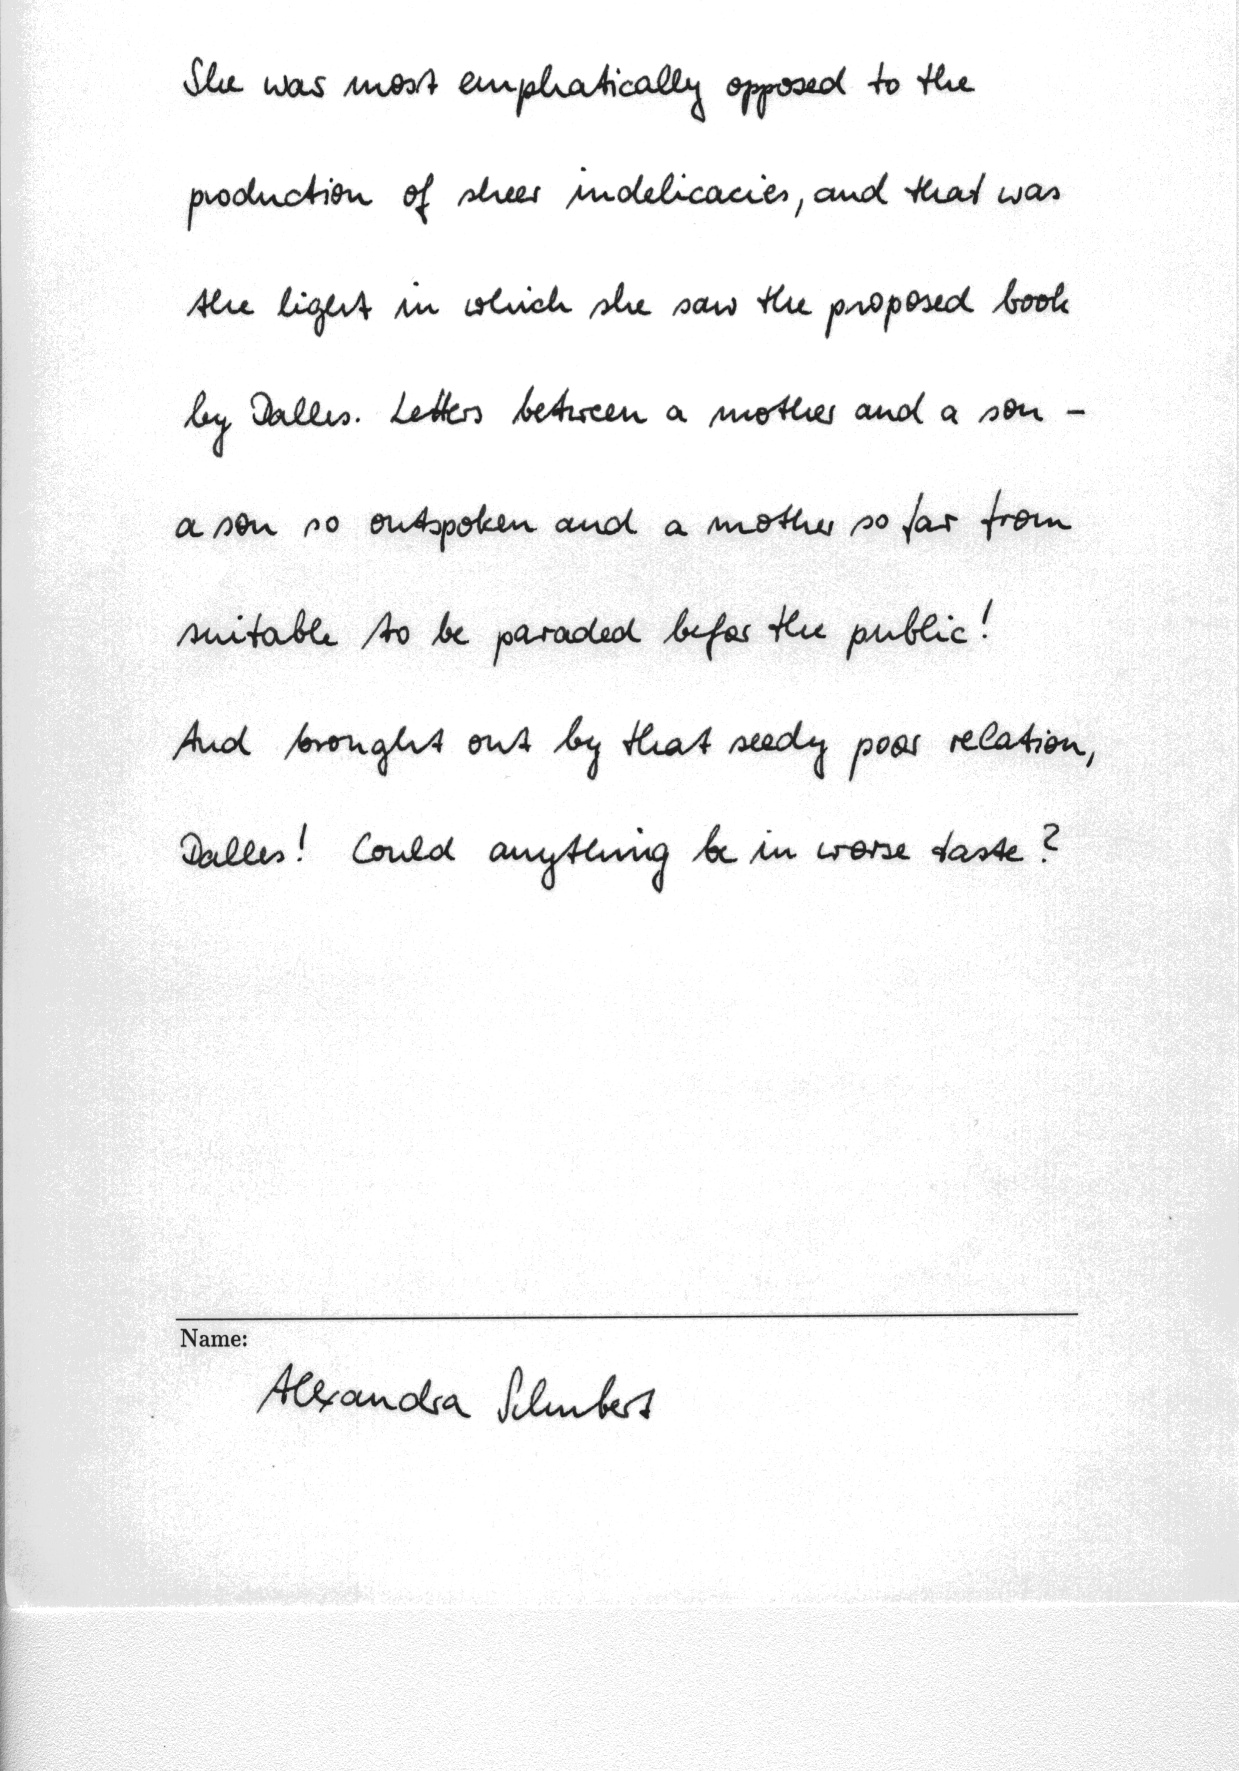 She was most emphatically opposed to the
production of sheer indelicacies, and that was
the light in which she saw the proposed book
by Dalles. Letters between a mother and a son -
a son so outspoken and a mother so far from
suitable to be paraded befor the public!
And brought out by that seedy poor relation,
Dalles! Could anything be in worse taste?
Name:
Alexandra Schubert